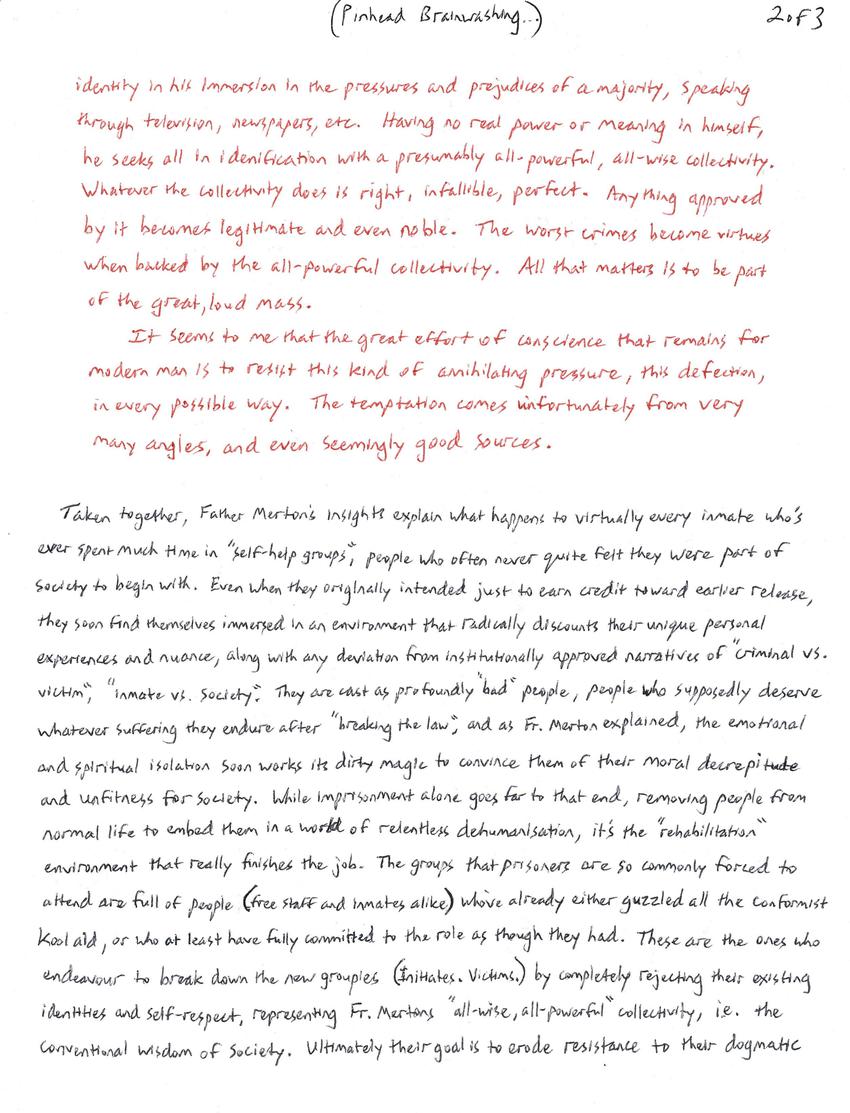 (Pinhead Brainwashing...)
2 of 3
identity in his immersion in the pressures and prejudices of a majority, speaking
through television, newspapers, etc. Having no real power or meaning in himself,
he seeks all in idenification with a presumably all-powerful, all-wise collectivity.
Whatever the collectivity does is right, infallible, perfect. Anything approved
by it becomes legitimate and even noble. The worst crimes become virtues
when backed by the all-powerful collectivity. All that matters is to be part
of the great, loud mass.
It seems to me that the great effort of conscience that remains for
modern man is to resist this kind of annihilating pressure, this defection,
in every possible way. The temptation comes unfortunately from very
many angles, and even seemingly good sources.
Taken together, Father Merton's insights explain what happens to virtually every inmate who's
ever spent much time in "self-help groups", people who often never quite felt they were part of
society to begin with. Even when they originally intended just to earn credit toward earlier release,
they soon find themselves immersed in an environment that radically discounts their unique personal
experiences and nuance, along with any deviation from institutionally approved narratives of "criminal vs.
victim", "inmate vs. society". They are cast as profoundly "bad" people, people who supposedly deserve
whatever suffering they endure after "breaking the law", and as Fr. Merton explained, the emotional
and spiritual isolation soon works its dirty magic to convince them of their moral decrepitude
and unfitness for society. While imprisonment alone goes far to that end, removing people from
normal life to embed them in a world of relentless dehumanisation, it's the "rehabilitation"
environment that really finishes the job. The groups that prisoners are so commonly forced to
attend are full of people (free staff and inmates alike) who've already either guzzled all the conformist
Kool aid, or who at least have fully committed to the role as though they had. These are the ones who
endeavour to break down the new groupies (Initiates. Victims.) by completely rejecting their existing
identities and self-respect, representing Fr. Mertons "all-wise, all-powerful" collectivity, i.e. the
conventional wisdom of society. Ultimately their goal is to erode resistance to their dogmatic